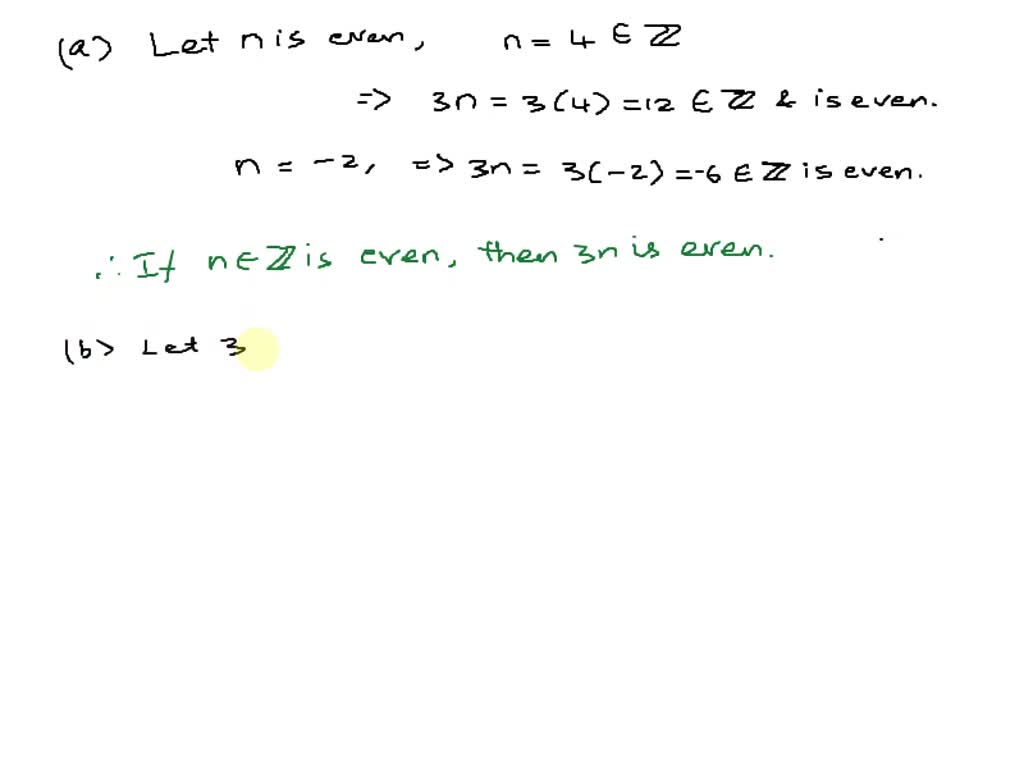 (a) Let n is even, n = 4 ∈ ℤ
=> 3n = 3(4) = 12 ∈ ℤ & is even.
n = -2, => 3n = 3(-2) = -6 ∈ ℤ is even.
∴ If n ∈ ℤ is even, then 3n is even.
(b) Let 3